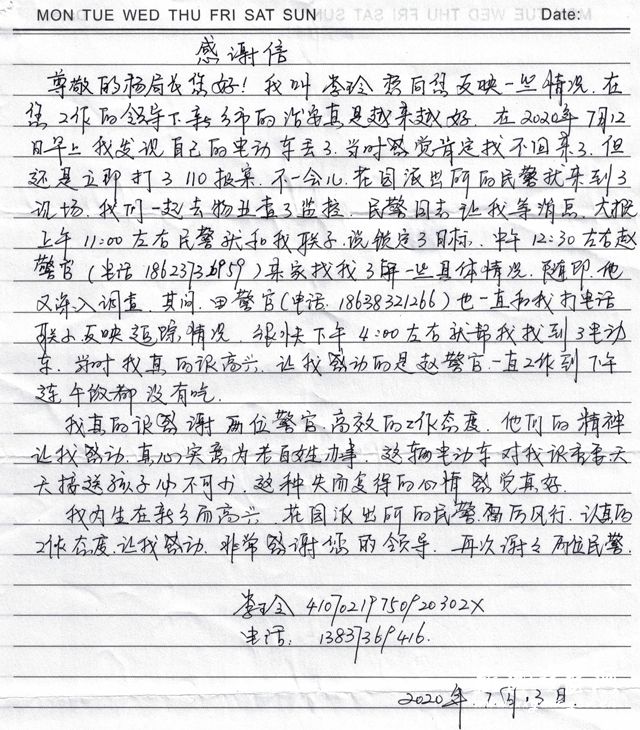 MON TUE WED THU FRI SAT SUN Date:
感谢信
尊敬的杨局长您好！我叫娄玲 要向您反映一些情况。在
您工作的领导下新乡市的治安真是越来越好。在2020年7月12
日早上我发现自己的电动车丢了。当时感觉肯定找不回来了。但
还是立即打了110报案。不一会儿花园派出所的民警就来到了
现场。我们一起去物业查了监控。民警回去让我等消息。大概
上午11:00左右民警就和我联系说锁定了目标。中午12:30左右赵
警官（电话 18623736959）来家找我了解一些具体情况。随即他
又深入调查。其间，田警官（电话.18638321266）也一直和我打电话
联系反映追踪情况。很快下午4:00左右就帮我找到了电动
车。当时我真的很高兴。让我感动的是赵警官一直工作到下午
连午饭都没有吃。
我真的很感谢两位警官高效的工作态度。他们的精神
让我感动。真心实意为老百姓办事。这辆电动车对我很重要天
天接送孩子必不可少 这种失而复得的心情感觉真好。
我为生在新乡而高兴。花园派出所的民警雷厉风行、认真的
工作态度让我感动。非常感谢您的领导。再次谢谢两位民警。
41070219750920302X
电话：13837369416.
2020年.7月13日.